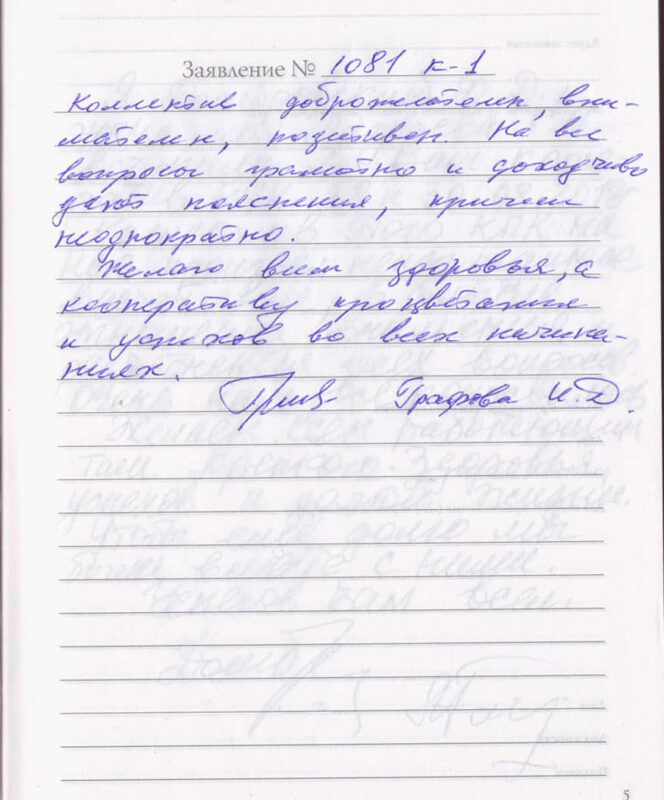 Заявление № 1081 к-1
Коллектив доброжелателен, вни-
мателен, позитивен. На все
вопросы грамотно и доходчиво
дают пояснения, причем
неоднократно.
Желаю всем здоровья, а
кооперативу процветания
и успехов во всех начина-
ниях.
Графова И.Д.
5